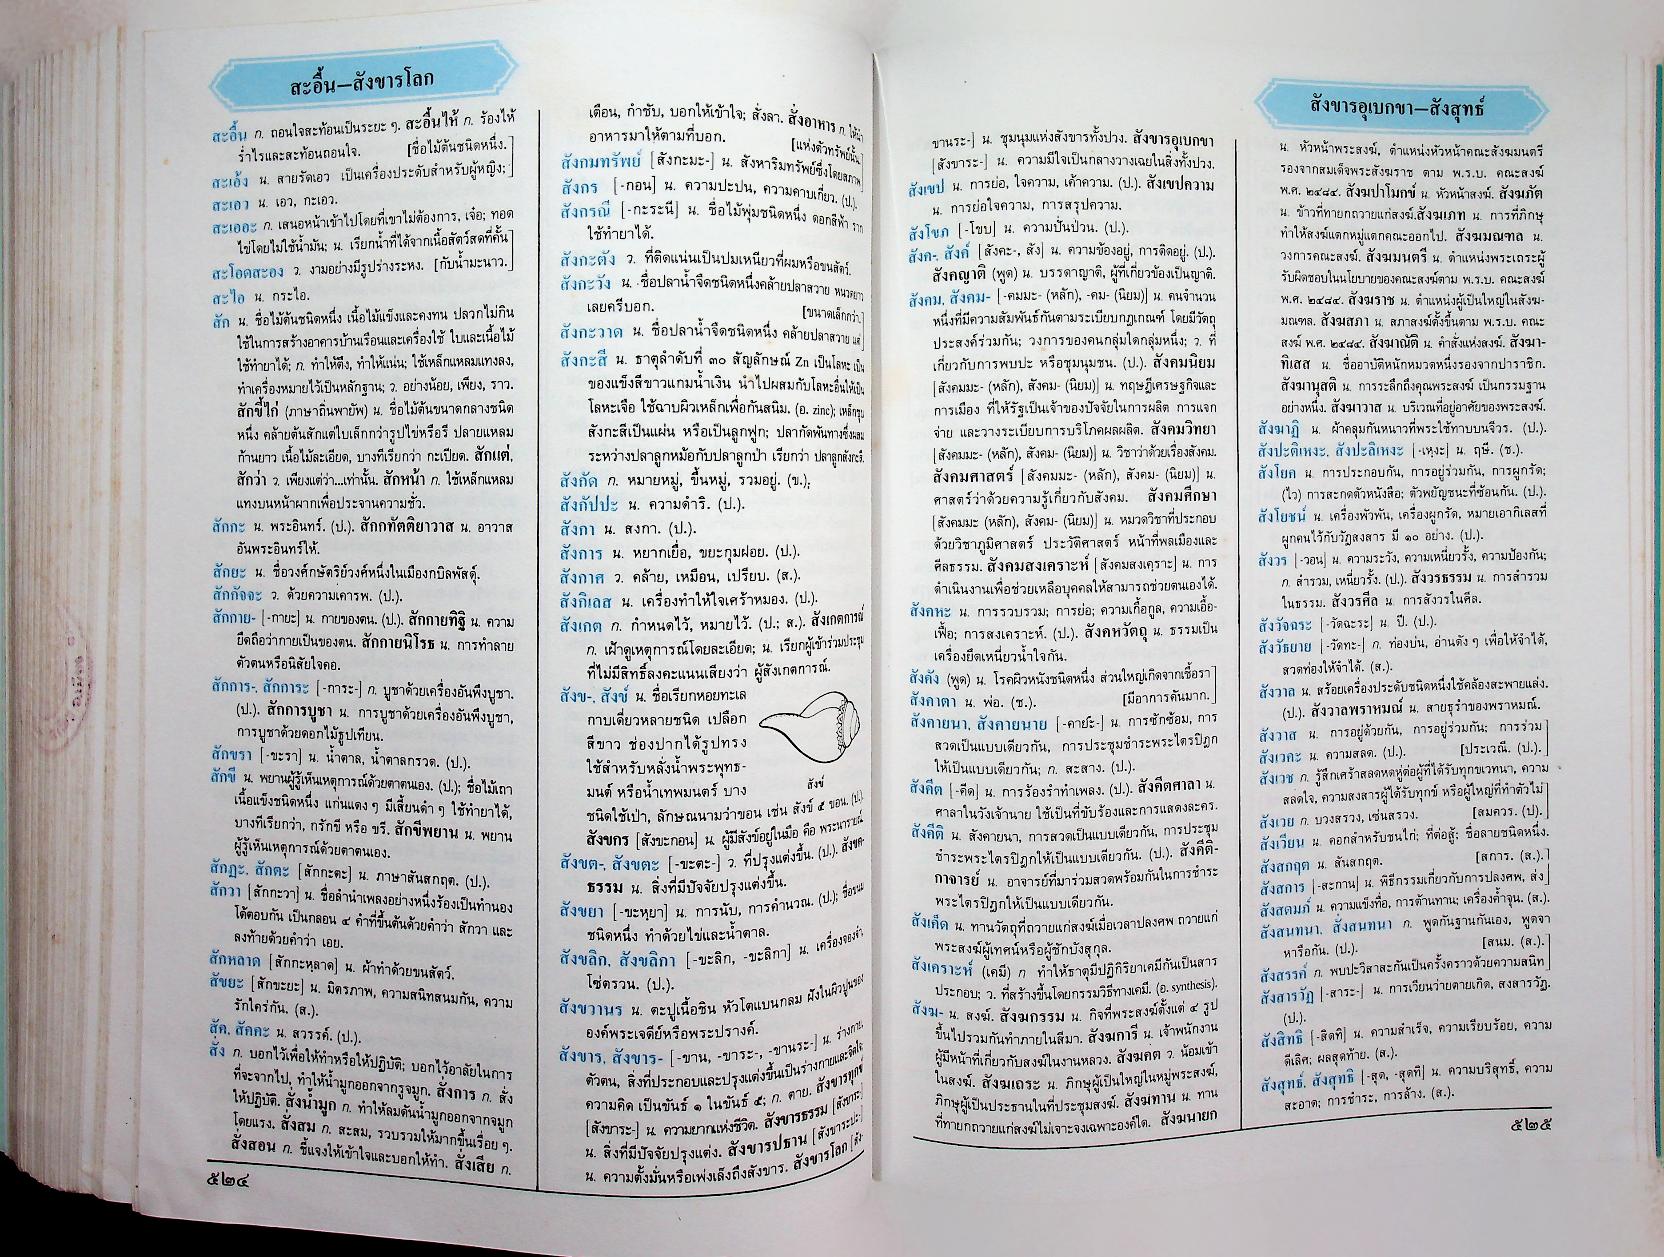 สะอื้น—สังขารโลก
สะอื้น ก. ถอนใจสะท้อนเป็นระยะ ๆ. สะอื้นไห้ ก. ร้องไห้
ร่ำไรและสะท้อนถอนใจ. [ชื่อไม้ต้นชนิดหนึ่ง.]
สะเอ้ง น. สายรัดเอว เป็นเครื่องประดับสำหรับผู้หญิง;
สะเอว น. เอว, กะเอว.
สะเออะ ก. เสนอหน้าเข้าไปโดยที่เขาไม่ต้องการ, เจ๋อ; ทอด
ไข่โดยไม่ใช้น้ำมัน; น. เรียกน้ำที่ได้จากเนื้อสัตว์สดที่คั้น
สะโอดสะอง ว. งามอย่างมีรูปร่างระหง. [กับน้ำมะนาว.]
สะไอ น. กระไอ.
สัก น. ชื่อไม้ต้นชนิดหนึ่ง เนื้อไม้แข็งและคงทน ปลวกไม่กิน
ใช้ในการสร้างอาคารบ้านเรือนและเครื่องใช้ ใบและเนื้อไม้
ใช้ทำยาได้; ก. ทำให้ตึง, ทำให้แน่น; ใช้เหล็กแหลมแทงลง,
ทำเครื่องหมายไว้เป็นหลักฐาน; ว. อย่างน้อย, เพียง, ราว.
สักขี้ไก่ (ภาษาถิ่นพายัพ) น. ชื่อไม้ต้นขนาดกลางชนิด
หนึ่ง คล้ายต้นสักแต่ใบเล็กกว่ารูปไข่หรือรี ปลายแหลม
ก้านยาว เนื้อไม้ละเอียด, บางทีเรียกว่า กะเปียด. สักแต่,
สักว่า ว. เพียงแต่ว่า...เท่านั้น. สักหน้า ก. ใช้เหล็กแหลม
แทงบนหน้าผากเพื่อประจานความชั่ว.
สักกะ น. พระอินทร์. (ป.). สักกทัตติยาวาส น. อาวาส
อันพระอินทร์ให้.
สักยะ น. ชื่อวงศ์กษัตริย์วงศ์หนึ่งในเมืองกบิลพัสดุ์.
สักกัจจะ ว. ด้วยความเคารพ. (ป.).
สักกาย- [-กายะ] น. กายของตน. (ป.). สักกายทิฐิ น. ความ
ยึดถือว่ากายเป็นของตน. สักกายนิโรธ น. การทำลาย
ตัวตนหรือนิสัยใจคอ.
สักการ-, สักการะ [-การะ-] ก. บูชาด้วยเครื่องอันพึงบูชา.
(ป.). สักการบูชา น. การบูชาด้วยเครื่องอันพึงบูชา,
การบูชาด้วยดอกไม้ธูปเทียน.
สักขรา [-ขะรา] น. น้ำตาล, น้ำตาลกรวด. (ป.).
สักขี น. พยานผู้รู้เห็นเหตุการณ์ด้วยตาตนเอง. (ป.); ชื่อไม้เถา
เนื้อแข็งชนิดหนึ่ง แก่นแดง ๆ มีเสี้ยนดำ ๆ ใช้ทำยาได้,
บางทีเรียกว่า, กรักขี หรือ ขรี. สักขีพยาน น. พยาน
ผู้รู้เห็นเหตุการณ์ด้วยตาตนเอง.
สักฏะ, สักตะ [สักกะตะ] น. ภาษาสันสกฤต. (ป.).
สักวา [สักกะวา] น. ชื่อลำนำเพลงอย่างหนึ่งร้องเป็นทำนอง
โต้ตอบกัน เป็นกลอน ๔ คำที่ขึ้นต้นด้วยคำว่า สักวา และ
ลงท้ายด้วยคำว่า เอย.
สักหลาด [สักกะหฺลาด] น. ผ้าทำด้วยขนสัตว์.
สัขยะ [สักขะยะ] น. มิตรภาพ, ความสนิทสนมกัน, ความ
รักใคร่กัน. (ส.).
สัค, สัคคะ น. สวรรค์. (ป.).
สั่ง ก. บอกไว้เพื่อให้ทำหรือให้ปฏิบัติ; บอกไว้อาลัยในการ
ที่จะจากไป, ทำให้น้ำมูกออกจากรูจมูก. สั่งการ ก. สั่ง
ให้ปฏิบัติ. สั่งน้ำมูก ก. ทำให้ลมดันน้ำมูกออกจากจมูก
โดยแรง. สั่งสม ก. สะสม, รวบรวมให้มากขึ้นเรื่อย ๆ.
สั่งสอน ก. ชี้แจงให้เข้าใจและบอกให้ทำ. สั่งเสีย ก.
๕๒๔
เตือน, กำชับ, บอกให้เข้าใจ; สั่งลา. สั่งอาหาร ก. ให้นำ
อาหารมาให้ตามที่บอก. [แห่งตัวทรัพย์นั้น]
สังกมทรัพย์ [สังกะมะ-] น. สังหาริมทรัพย์ซึ่งโดยสภาพ
สังกร [-กอน] น. ความปะปน, ความคาบเกี่ยว. (ป.).
สังกรณี [-กะระนี] น. ชื่อไม้พุ่มชนิดหนึ่ง ดอกสีฟ้า ราก
ใช้ทำยาได้.
สังกะตัง ว. ที่ติดแน่นเป็นปมเหนียวที่ผมหรือขนสัตว์.
สังกะวัง น. ชื่อปลาน้ำจืดชนิดหนึ่งคล้ายปลาสวาย หนวดยาว
เลยครีบอก. [ขนาดเล็กกว่า.]
สังกะวาด น. ชื่อปลาน้ำจืดชนิดหนึ่ง คล้ายปลาสวาย แต่
สังกะสี น. ธาตุลำดับที่ ๓๐ สัญลักษณ์ Zn เป็นโลหะ เป็น
ของแข็งสีขาวแกมน้ำเงิน นำไปผสมกับโลหะอื่นให้เป็น
โลหะเจือ ใช้ฉาบผิวเหล็กเพื่อกันสนิม. (อ. zinc); เหล็กชุบ
สังกะสีเป็นแผ่น หรือเป็นลูกฟูก; ปลากัดพันทางซึ่งผสม
ระหว่างปลาลูกหม้อกับปลาลูกป่า เรียกว่า ปลาลูกสังกะสี.
สังกัด ก. หมายหมู่, ขึ้นหมู่, รวมอยู่. (ข.);
สังกัปปะ น. ความดำริ. (ป.).
สังกา น. สงกา. (ป.).
สังการ น. หยากเยื่อ, ขยะกุมฝอย. (ป.).
สังกาศ ว. คล้าย, เหมือน, เปรียบ. (ส.).
สังกิเลส น. เครื่องทำให้ใจเศร้าหมอง. (ป.).
สังเกต ก. กำหนดไว้, หมายไว้. (ป.; ส.). สังเกตการณ์
ก. เฝ้าดูเหตุการณ์โดยละเอียด; น. เรียกผู้เข้าร่วมประชุม
ที่ไม่มีสิทธิ์ลงคะแนนเสียงว่า ผู้สังเกตการณ์.
สังข-, สังข์ น. ชื่อเรียกหอยทะเล
กาบเดี่ยวหลายชนิด เปลือก
สีขาว ช่องปากได้รูปทรง
ใช้สำหรับหลั่งน้ำพระพุทธ-
มนต์ หรือน้ำเทพมนตร์ บาง
สังข์
ชนิดใช้เป่า, ลักษณนามว่าขอน เช่น สังข์ ๕ ขอน. (ป.).
สังขกร [สังขะกอน] น. ผู้มีสังข์อยู่ในมือ คือ พระนารายณ์.
สังขต-, สังขตะ [-ขะตะ-] ว. ที่ปรุงแต่งขึ้น. (ป.). สังขต-
ธรรม น. สิ่งที่มีปัจจัยปรุงแต่งขึ้น.
สังขยา [-ขะหฺยา] น. การนับ, การคำนวณ. (ป.); ชื่อขนม
ชนิดหนึ่ง ทำด้วยไข่และน้ำตาล.
สังขลิก, สังขลิกา [-ขะลิก, -ขะลิกา] น. เครื่องจองจำ,
โซ่ตรวน. (ป.).
สังขวานร น. ตะปูเนื้อชิน หัวโตแบนกลม ฝังในผิวปูนของ
องค์พระเจดีย์หรือพระปรางค์.
สังขาร, สังขาร- [-ขาน, -ขาระ-, -ขานระ-] น. ร่างกาย,
ตัวตน, สิ่งที่ประกอบและปรุงแต่งขึ้นเป็นร่างกายและจิตใจ
ความคิด เป็นขันธ์ ๑ ในขันธ์ ๕; ก. ตาย. สังขารทุกข์
[สังขาระ-] น. ความยากแห่งชีวิต. สังขารธรรม [สังขาระ-]
น. สิ่งที่มีปัจจัยปรุงแต่ง. สังขารปธาน [สังขาระปะ-]
น. ความตั้งมั่นหรือเพ่งเล็งถึงสังขาร. สังขารโลก [สัง-
สังขารอุเบกขา—สังสุทธ์
ขานระ-] น. ชุมนุมแห่งสังขารทั้งปวง. สังขารอุเบกขา
[สังขาระ-] น. ความมีใจเป็นกลางวางเฉยในสิ่งทั้งปวง.
สังเขป น. การย่อ, ใจความ, เค้าความ. (ป.). สังเขปความ
น. การย่อใจความ, การสรุปความ.
สังโขภ [-โขบ] น. ความปั่นป่วน. (ป.).
สังค-, สังค์ [สังคะ-, สัง] น. ความข้องอยู่, การติดอยู่. (ป.).
สังคญาติ (พูด) น. บรรดาญาติ, ผู้ที่เกี่ยวข้องเป็นญาติ.
สังคม, สังคม- [-คมมะ- (หลัก), -คม- (นิยม)] น. คนจำนวน
หนึ่งที่มีความสัมพันธ์กันตามระเบียบกฎเกณฑ์ โดยมีวัตถุ
ประสงค์ร่วมกัน; วงการของคนกลุ่มใดกลุ่มหนึ่ง; ว. ที่
เกี่ยวกับการพบปะ หรือชุมนุมชน. (ป.). สังคมนิยม
[สังคมมะ- (หลัก), สังคม- (นิยม)] น. ทฤษฎีเศรษฐกิจและ
การเมือง ที่ให้รัฐเป็นเจ้าของปัจจัยในการผลิต การแจก
จ่าย และวางระเบียบการบริโภคผลผลิต. สังคมวิทยา
[สังคมมะ- (หลัก), สังคม- (นิยม)] น. วิชาว่าด้วยเรื่องสังคม.
สังคมศาสตร์ [สังคมมะ- (หลัก), สังคม- (นิยม)] น.
ศาสตร์ว่าด้วยความรู้เกี่ยวกับสังคม. สังคมศึกษา
[สังคมมะ (หลัก), สังคม- (นิยม)] น. หมวดวิชาที่ประกอบ
ด้วยวิชาภูมิศาสตร์ ประวัติศาสตร์ หน้าที่พลเมืองและ
ศีลธรรม. สังคมสงเคราะห์ [สังคมสงเคฺราะ] น. การ
ดำเนินงานเพื่อช่วยเหลือบุคคลให้สามารถช่วยตนเองได้.
สังคหะ น. การรวบรวม; การย่อ; ความเกื้อกูล, ความเอื้อ-
เฟื้อ; การสงเคราะห์. (ป.). สังคหวัตถุ น. ธรรมเป็น
เครื่องยึดเหนี่ยวน้ำใจกัน.
สังคัง (พูด) น. โรคผิวหนังชนิดหนึ่ง ส่วนใหญ่เกิดจากเชื้อรา
สังคาตา น. พ่อ. (ช.). [มีอาการคันมาก.]
สังคายนา, สังคายนาย [-คายะ-] น. การซักซ้อม, การ
สวดเป็นแบบเดียวกัน, การประชุมชำระพระไตรปิฎก
ให้เป็นแบบเดียวกัน; ก. สะสาง. (ป.).
สังคีต [-คีด] น. การร้องรำทำเพลง. (ป.). สังคีตศาลา น.
ศาลาในวังเจ้านาย ใช้เป็นที่ขับร้องและการแสดงละคร.
สังคีติ น. สังคายนา, การสวดเป็นแบบเดียวกัน, การประชุม
ชำระพระไตรปิฎกให้เป็นแบบเดียวกัน. (ป.). สังคีติ-
กาจารย์ น. อาจารย์ที่มาร่วมสวดพร้อมกันในการชำระ
พระไตรปิฎกให้เป็นแบบเดียวกัน.
สังเค็ด น. ทานวัตถุที่ถวายแก่สงฆ์เมื่อเวลาปลงศพ ถวายแก่
พระสงฆ์ผู้เทศน์หรือผู้ชักบังสุกุล.
สังเคราะห์ (เคมี) ก ทำให้ธาตุมีปฏิกิริยาเคมีกันเป็นสาร
ประกอบ; ว. ที่สร้างขึ้นโดยกรรมวิธีทางเคมี. (อ. synthesis).
สังฆ- น. สงฆ์. สังฆกรรม น. กิจที่พระสงฆ์ตั้งแต่ ๔ รูป
ขึ้นไปรวมกันทำภายในสีมา. สังฆการี น. เจ้าพนักงาน
ผู้มีหน้าที่เกี่ยวกับสงฆ์ในงานหลวง. สังฆคต ว. น้อมเข้า
ในสงฆ์. สังฆเถระ น. ภิกษุผู้เป็นใหญ่ในหมู่พระสงฆ์,
ภิกษุผู้เป็นประธานในที่ประชุมสงฆ์. สังฆทาน น. ทาน
ที่ทายกถวายแก่สงฆ์ไม่เจาะจงเฉพาะองค์ใด. สังฆนายก
น. หัวหน้าพระสงฆ์, ตำแหน่งหัวหน้าคณะสังฆมนตรี
รองจากสมเด็จพระสังฆราช ตาม พ.ร.บ. คณะสงฆ์
พ.ศ. ๒๔๘๔. สังฆปาโมกข์ น. หัวหน้าสงฆ์. สังฆภัต
น. ข้าวที่ทายกถวายแก่สงฆ์.สังฆเภท น. การที่ภิกษุ
ทำให้สงฆ์แตกหมู่แตกคณะออกไป. สังฆมณฑล น.
วงการคณะสงฆ์. สังฆมนตรี น. ตำแหน่งพระเถระผู้
รับผิดชอบในนโยบายของคณะสงฆ์ตาม พ.ร.บ. คณะสงฆ์
พ.ศ. ๒๔๘๔. สังฆราช น. ตำแหน่งผู้เป็นใหญ่ในสังฆ-
มณฑล. สังฆสภา น. สภาสงฆ์ตั้งขึ้นตาม พ.ร.บ. คณะ
สงฆ์ พ.ศ. ๒๔๘๔. สังฆาณัติ น. คำสั่งแห่งสงฆ์. สังฆา-
ทิเสส น. ชื่ออาบัติหนักหมวดหนึ่งรองจากปาราชิก.
สังฆานุสติ น. การระลึกถึงคุณพระสงฆ์ เป็นกรรมฐาน
อย่างหนึ่ง. สังฆาวาส น. บริเวณที่อยู่อาศัยของพระสงฆ์.
สังฆาฏิ น. ผ้าคลุมกันหนาวที่พระใช้ทาบบนจีวร. (ป.).
สังปะติเหงะ, สังปะลิเหงะ [-เหฺงะ] น. ฤษี. (ช.).
สังโยค น. การประกอบกัน, การอยู่ร่วมกัน, การผูกรัด;
(ไว) การสะกดตัวหนังสือ; ตัวพยัญชนะที่ซ้อนกัน. (ป.).
สังโยชน์ น. เครื่องพัวพัน, เครื่องผูกรัด, หมายเอากิเลสที่
ผูกคนไว้กับวัฏสงสาร มี ๑๐ อย่าง. (ป.).
สังวร [-วอน] น. ความระวัง, ความเหนี่ยวรั้ง, ความป้องกัน;
ก. สำรวม, เหนี่ยวรั้ง. (ป.). สังวรธรรม น. การสำรวม
ในธรรม. สังวรศีล น. การสังวรในศีล.
สังวัจฉระ [-วัดฉะระ] น. ปี. (ป.).
สังวัธยาย [-วัดทะ-] ก. ท่องบ่น, อ่านดัง ๆ เพื่อให้จำได้,
สวดท่องให้จำได้. (ส.).
สังวาล น. สร้อยเครื่องประดับชนิดหนึ่งใช้คล้องสะพายแล่ง.
(ป.). สังวาลพราหมณ์ น. สายธุรำของพราหมณ์.
สังวาส น. การอยู่ด้วยกัน, การอยู่ร่วมกัน; การร่วม
สังเวคะ น. ความสลด. (ป.). [ประเวณี. (ป.).]
สังเวช ก. รู้สึกเศร้าสลดหดหู่ต่อผู้ที่ได้รับทุกขเวทนา, ความ
สลดใจ, ความสงสารผู้ได้รับทุกข์ หรือผู้ใหญ่ที่ทำตัวไม่
สังเวย ก. บวงสรวง, เซ่นสรวง. [สมควร. (ป.).]
สังเวียน น. คอกสำหรับชนไก่; ที่ต่อสู้; ชื่อลายชนิดหนึ่ง.
สังสกฤต น. สันสกฤต. [สการ. (ส.).]
สังสการ [-สะกาน] น. พิธีกรรมเกี่ยวกับการปลงศพ, ส่ง
สังสดมภ์ น. ความแข็งทื่อ, การต้านทาน; เครื่องค้ำจุน. (ส.).
สังสนทนา, สั่งสนทนา ก. พูดกันฐานกันเอง, พูดจา
หารือกัน. (ป.). [สนม. (ส.).]
สังสรรค์ ก. พบปะวิสาสะกันเป็นครั้งคราวด้วยความสนิท
สังสารวัฏ [-สาระ-] น. การเวียนว่ายตายเกิด, สงสารวัฏ.
(ป.).
สังสิทธิ [-สิดทิ] น. ความสำเร็จ, ความเรียบร้อย, ความ
ดีเลิศ; ผลสุดท้าย. (ส.).
สังสุทธ์, สังสุทธิ [-สุด, -สุดทิ] น. ความบริสุทธิ์, ความ
สะอาด; การชำระ, การล้าง. (ส.).
๕๒๕